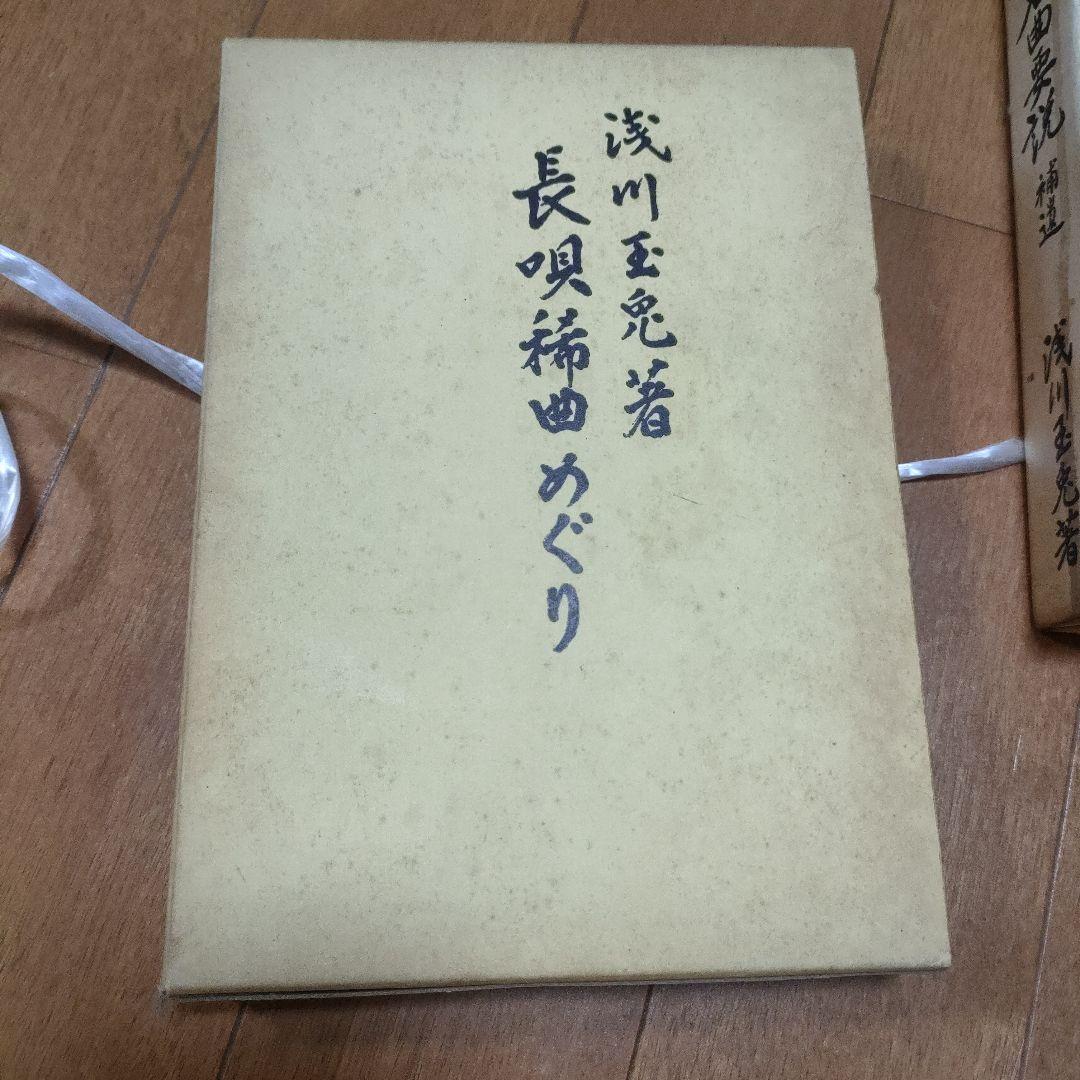 浅川玉兎著
長唄稀曲めぐり
名曲要説 補遺 浅川玉兎著